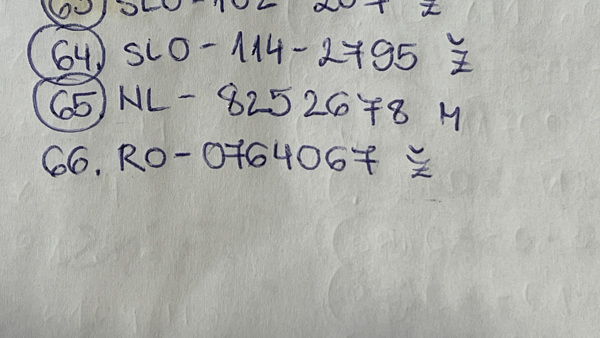 64. SLO-114-2795 Ž
65. NL-8252678 M
66. RO-0764067 Ž